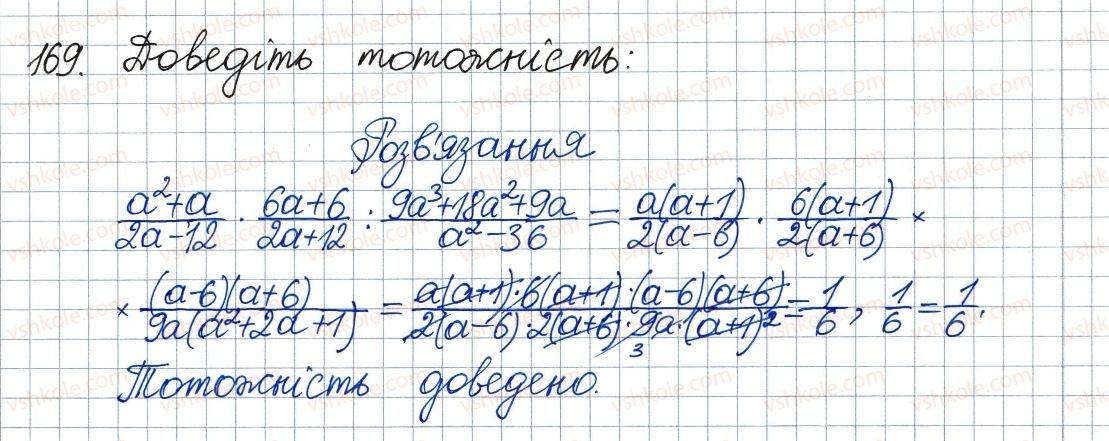 169. Доведіть тотожність:
Розв'язання
(a²+a)/(2a-12) · (6a+6)/(2a+12) : (9a³+18a²+9a)/(a²-36) = a(a+1)/2(a-6) · 6(a+1)/2(a+6) ×
× (a-6)(a+6)/9a(a²+2a+1) = a(a+1)·6(a+1)·(a-6)(a+6)/2(a-6)·2(a+6)·9a·(a+1)² = 1/6, 1/6 = 1/6.
3
Тотожність доведено.